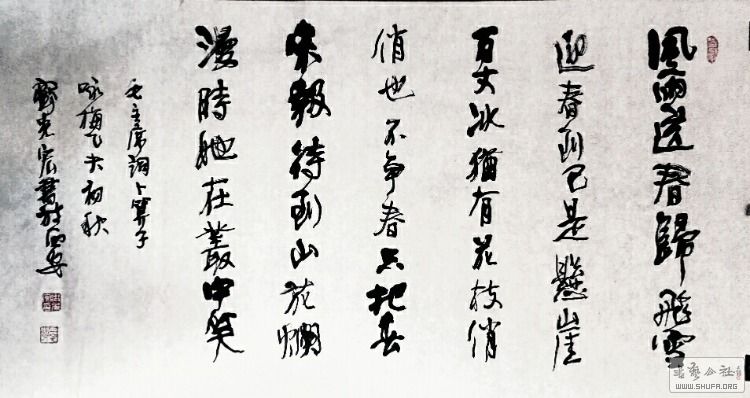 風雨送春歸飛雪
迎春到已是懸崖
百丈冰猶有花枝俏
俏也不争春只把春
来報待到山花爛
漫時她在叢中笑
毛主席詞卜算子
咏梅乙未初秋
書於西安
公社
WWW.SHUFA.ORG